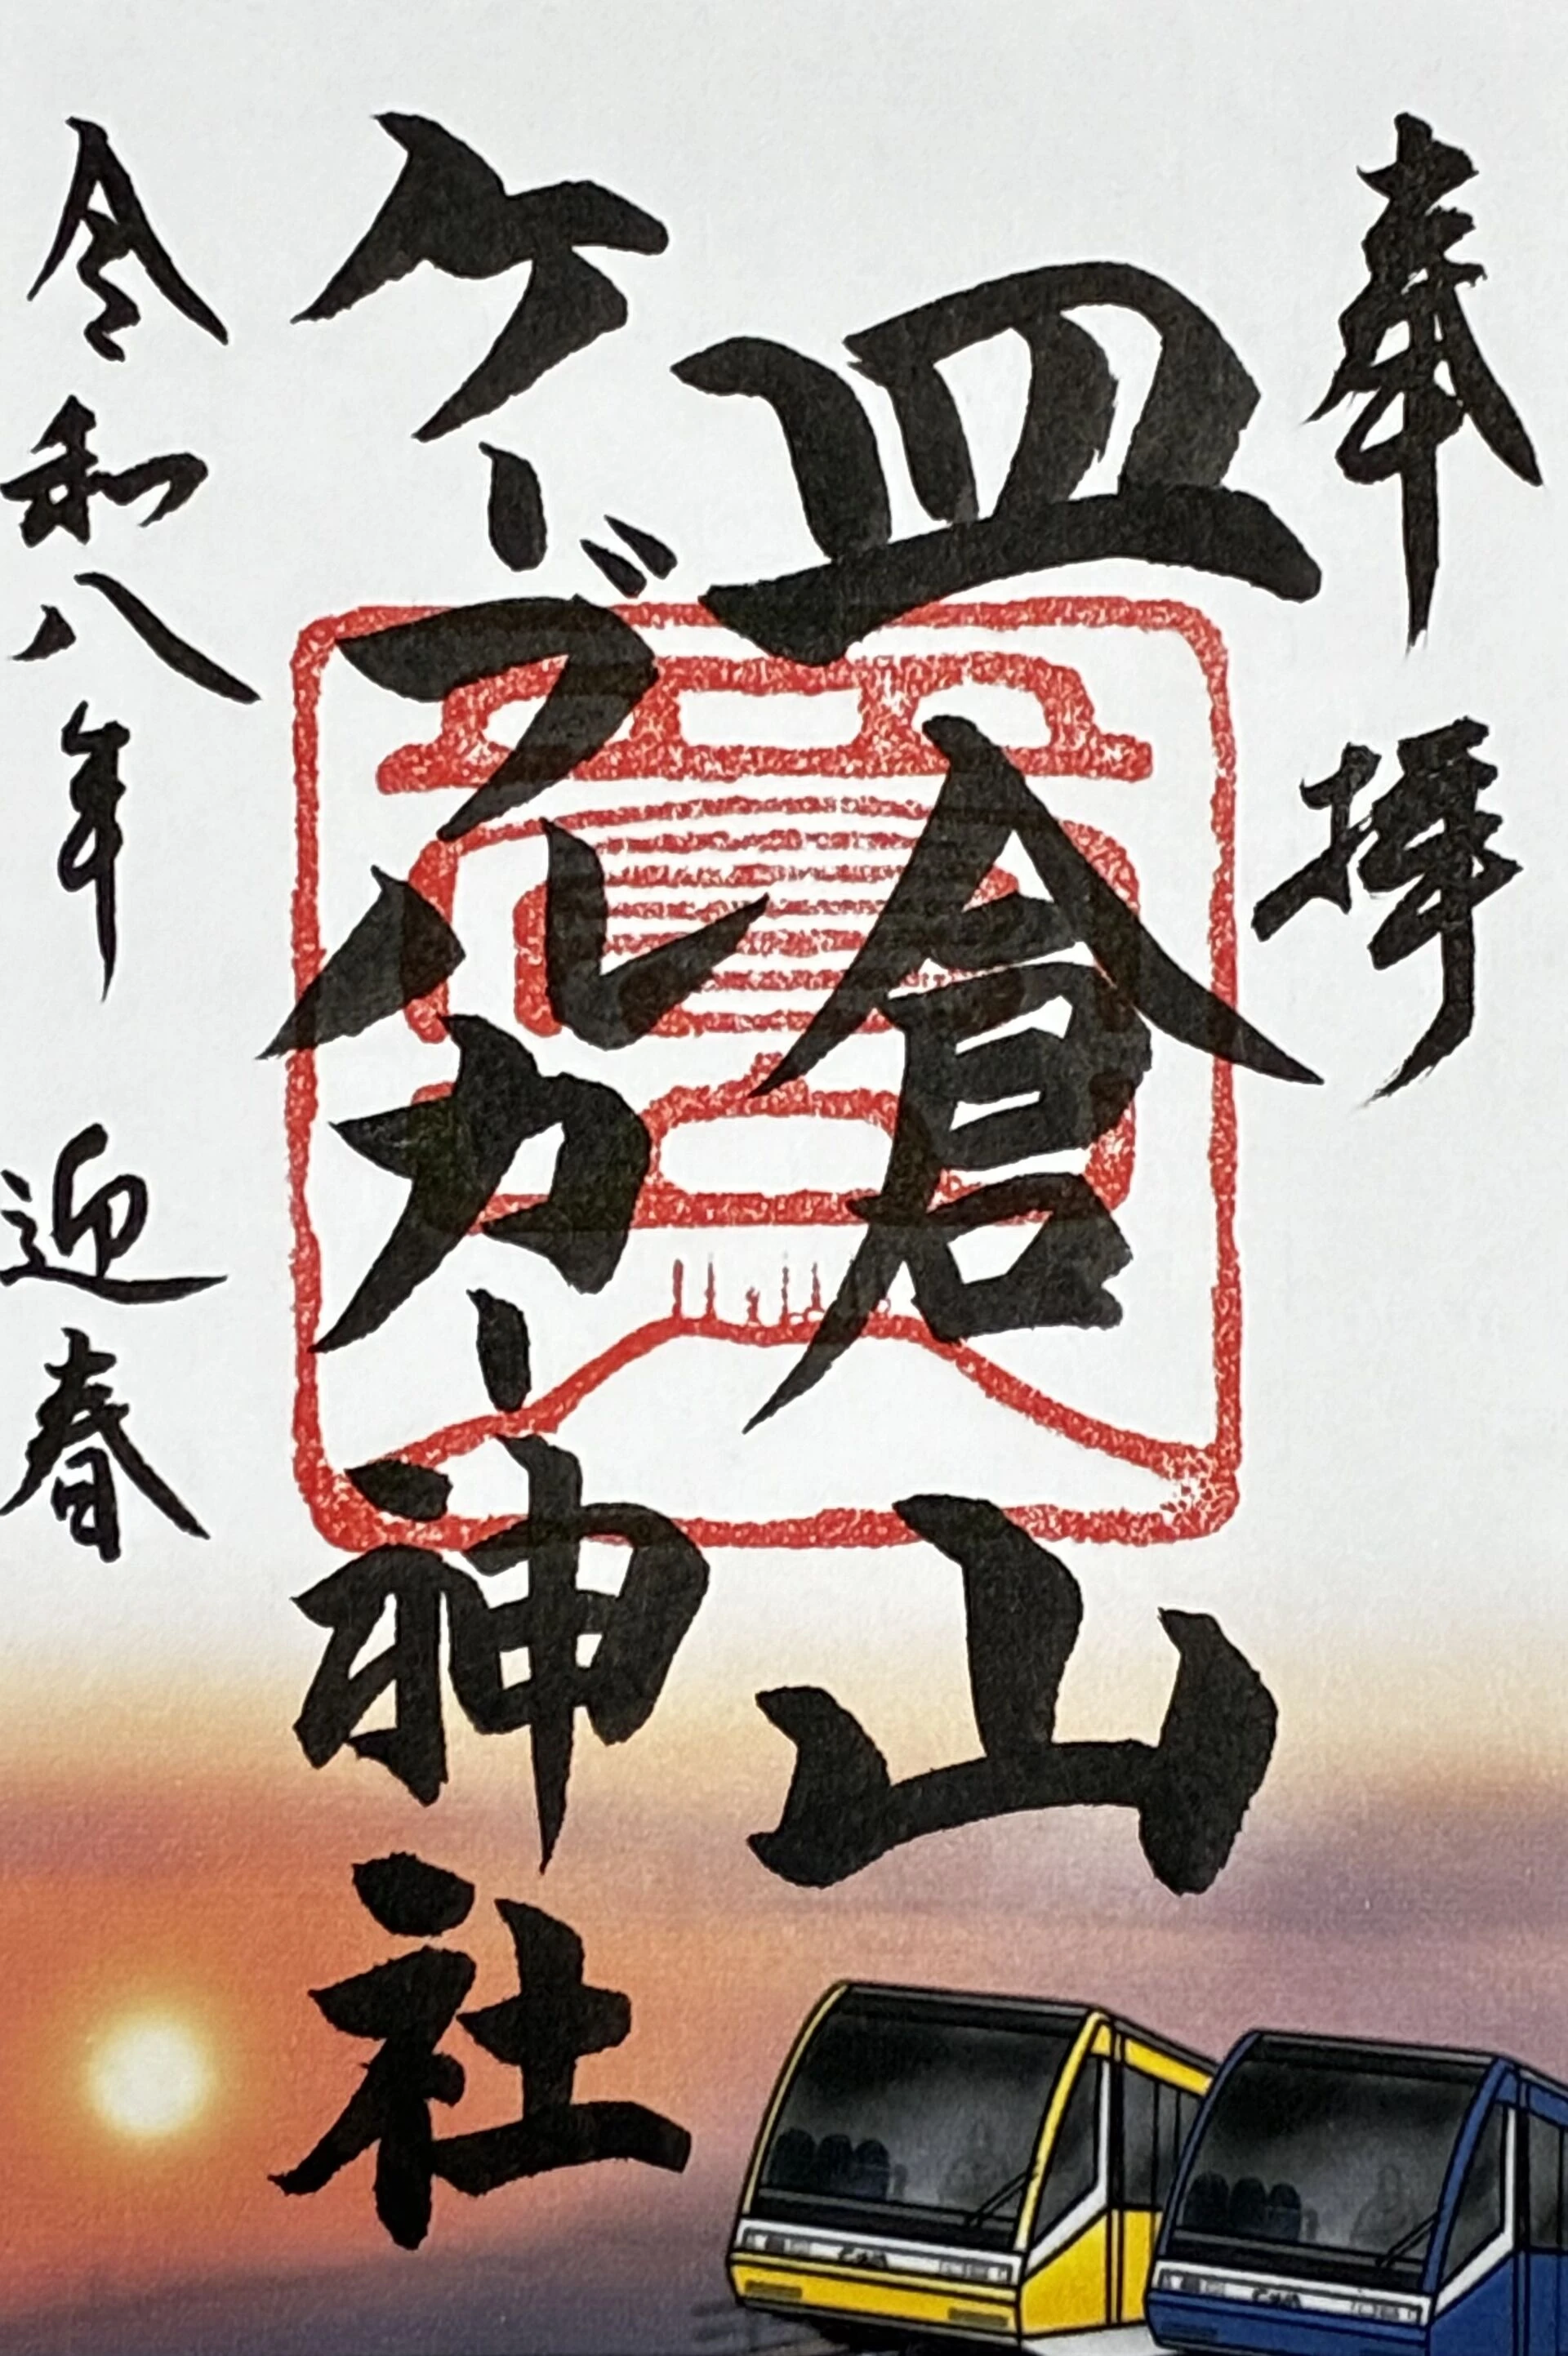 奉拝
皿倉山
ケーブルカー神社
令和八年 迎春